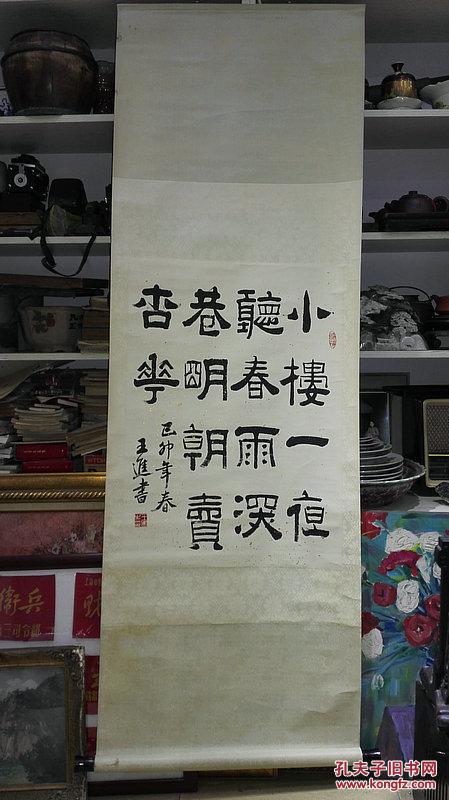 小樓一夜
聽春雨深
巷明朝賣
杏華
己卯年春
王進書
衛兵
三司令部
孔夫子旧书网
www.kongfz.com